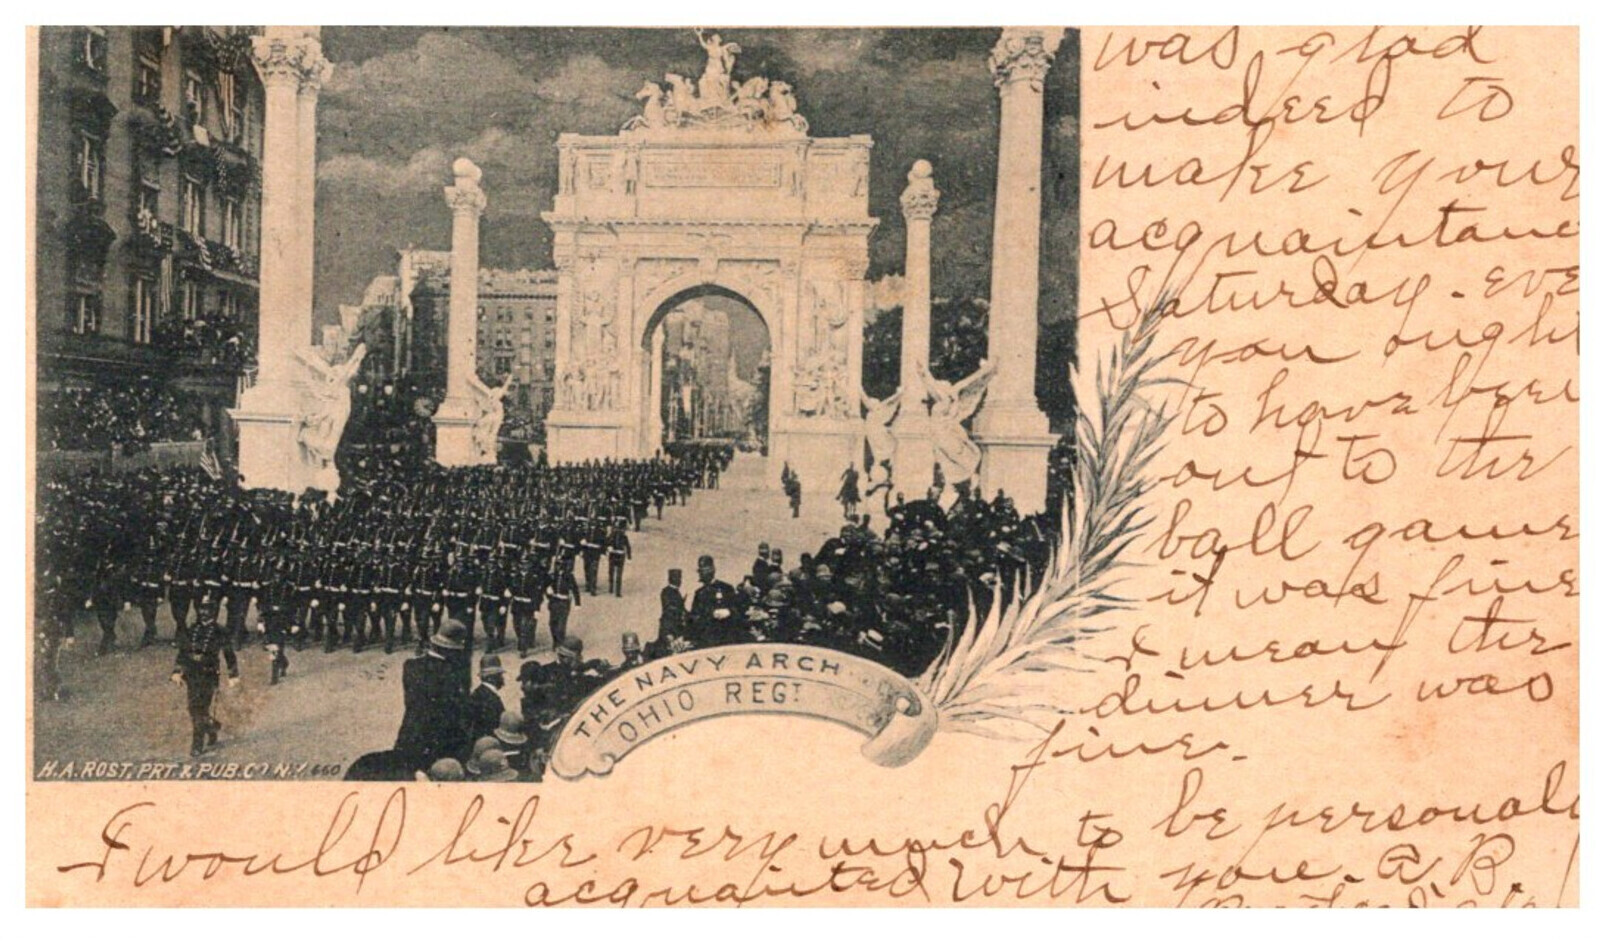 was glad
indeed to
make your
acquaintanc
Saturday. eve
you ought
to have been
out to the
ball game
it was fine
I mean the
dinner was
fine.
THE NAVY ARCH
OHIO REGT
H.A. ROST, PRT. & PUB. CO N.Y. 660
I would like very much to be personall
acquainted with you. A. B.